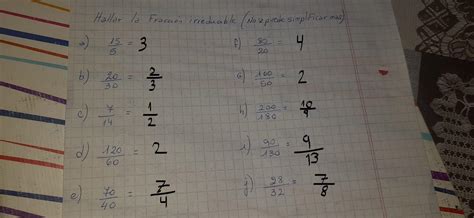 Hallar la Fracción irreducible (No se puede simplificar mas)
a) 15/5 = 3
b) 20/30 = 2/3
c) 7/14 = 1/2
d) 120/60 = 2
e) 70/40 = 7/4
f) 80/20 = 4
g) 100/50 = 2
h) 200/180 = 10/9
i) 90/130 = 9/13
j) 28/32 = 7/8